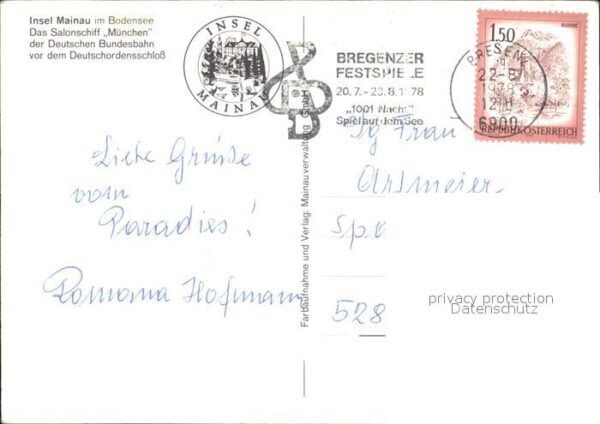 Insel Mainau im Bodensee
Das Salonschiff „München"
der Deutschen Bundesbahn
vor dem Deutschordensschloß
INSEL
MAINAU
BREGENZER
FESTSPIE_E
20.7. - 20.8.1978
„1001 Nacht"
Spiel auf dem See
1.50
6900
REPUBLIK ÖSTERREICH
Liebe Grüsse
vom
Paradies!
Romana Hofmann
Farbaufnahme und Verlag: Mainauverwaltung GmbH
Frau
Artmeier
Spo
528
privacy protection
Datenschutz